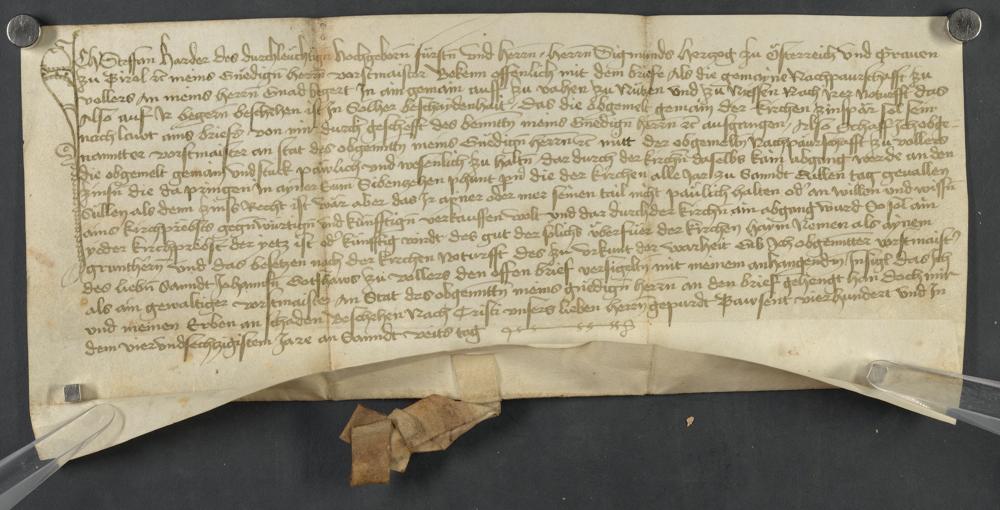 Ich Steffan Harder des durchleuchtign hochgeborn fürstn und herrn, herrn Sigmunds herczog zu Österreich und Graven
zu Tirol etc meins Gnedign herrn vorstmaister Bekenn offenlich mit dem brieve Als die gemayne Nachpaurschafft zu
vollers An meins herrn Gnad begert In ain gemain auff zu vahen zu Nüczen und zu Niessen Nach Irer Noturfft das
Also auf Ir begern beschehen ist In solher beschaidenhait, das die obgemelt gemain der kirchen zinsper sol sein
nach laut ains briefs von mir durch geschefft des benantn meins Gnedign herrn etc ausgangen, Also Schaff Ich obge-
nannter vorstmaister an stat des obgemeltn meins Gnedign herrn etc mitt der obgemeltn Nachpaurschafft zu vollers
die obgemelt gemain und stuck päwlich und wesenlich zu haltn dar durch der kirchn daselbs kain abgang werde an den
zinsn die da pringen in ayner Sum Sibenzehen phunt pn die der kirchen alle Jar zu Sanndt Gallen tag gevallen
Sullen als denn zinss Recht ist wär aber das Ir ainer oder mer seinen tail nicht päulich halten od an willen und wissn
ains kirchprobsts gegnwürtign und künfftign verkauffen wolt und dar durch der kirchn ain abgang wurd So sol ain
yeder kirchprobst der yetz ist od künfftig wirdt des gut der solichs überfüer der kirchen haim Nemen als aynem
gruntherrn und das besetzen nach der kirchen Noturfft des zu urkunt der warheit Gib Ich obgenanter vorstmaister
des liebn Sanndt Johannsn Gotshaws zu vollers den offen brief versigeltn mit meinem anhangendn Insigl das Ich
als ain gewaltiger vorstmaister An Stat des obgemeltn meins gnedign herrn an den brief gehengt han Doch mir
und meinen Erben an schaden Beschehen Nach Cristi unsers lieben hern gepurdt Tawsent vierhundert und In
dem vierundsechzigistem Jare an Sanndt veits tag